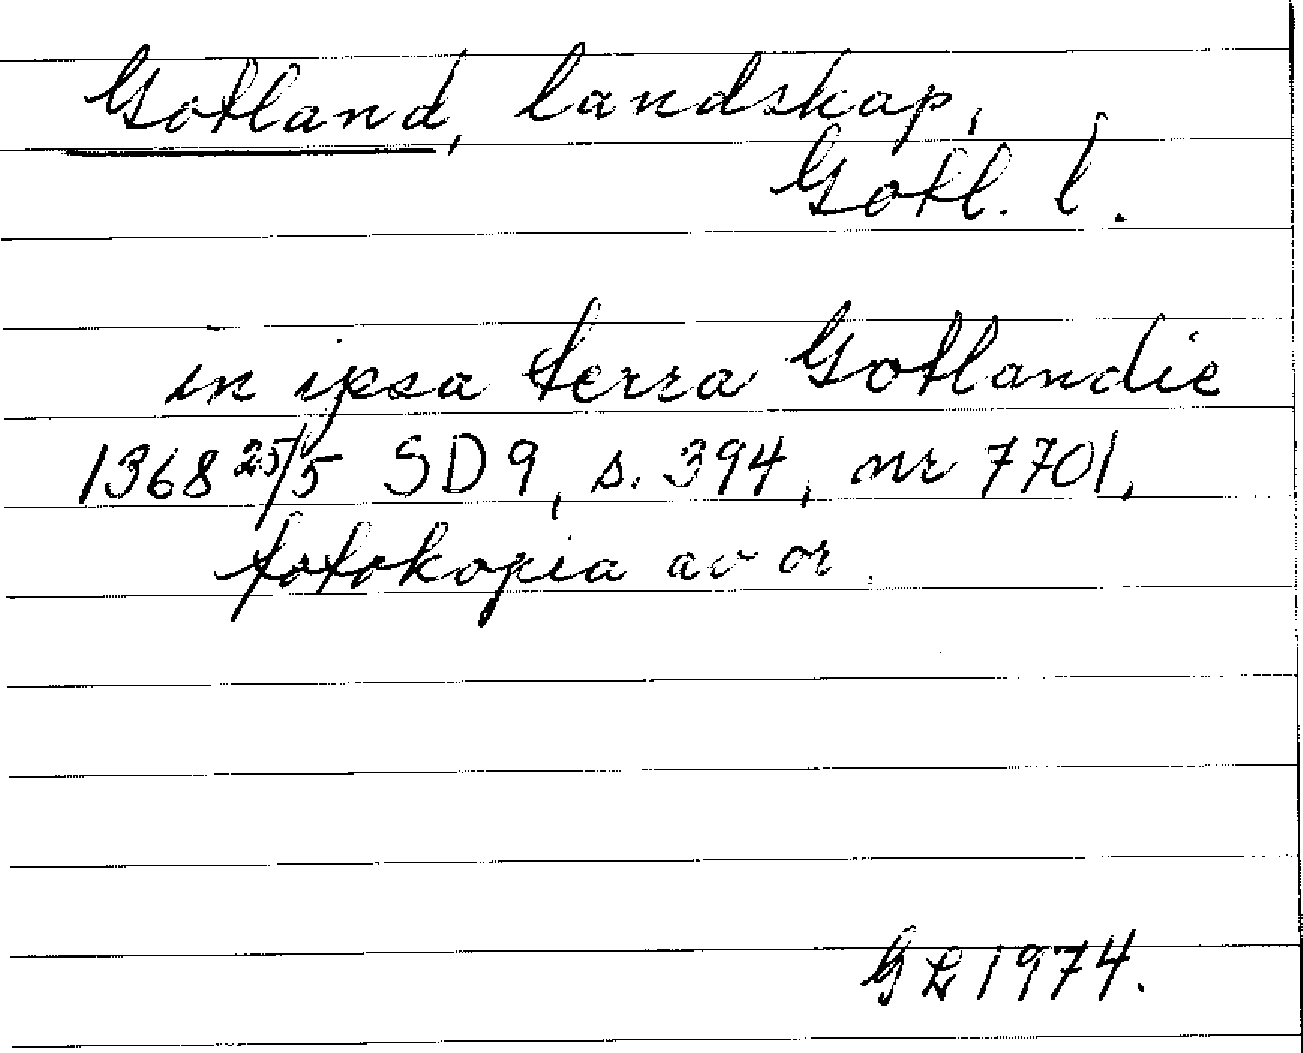 Gotland, landskap,
Gotl. l.
in ipsa terra Gotlandie
1368 25/5 SD 9, s. 394, nr 7701,
fotokopia av or.
G L 1974.